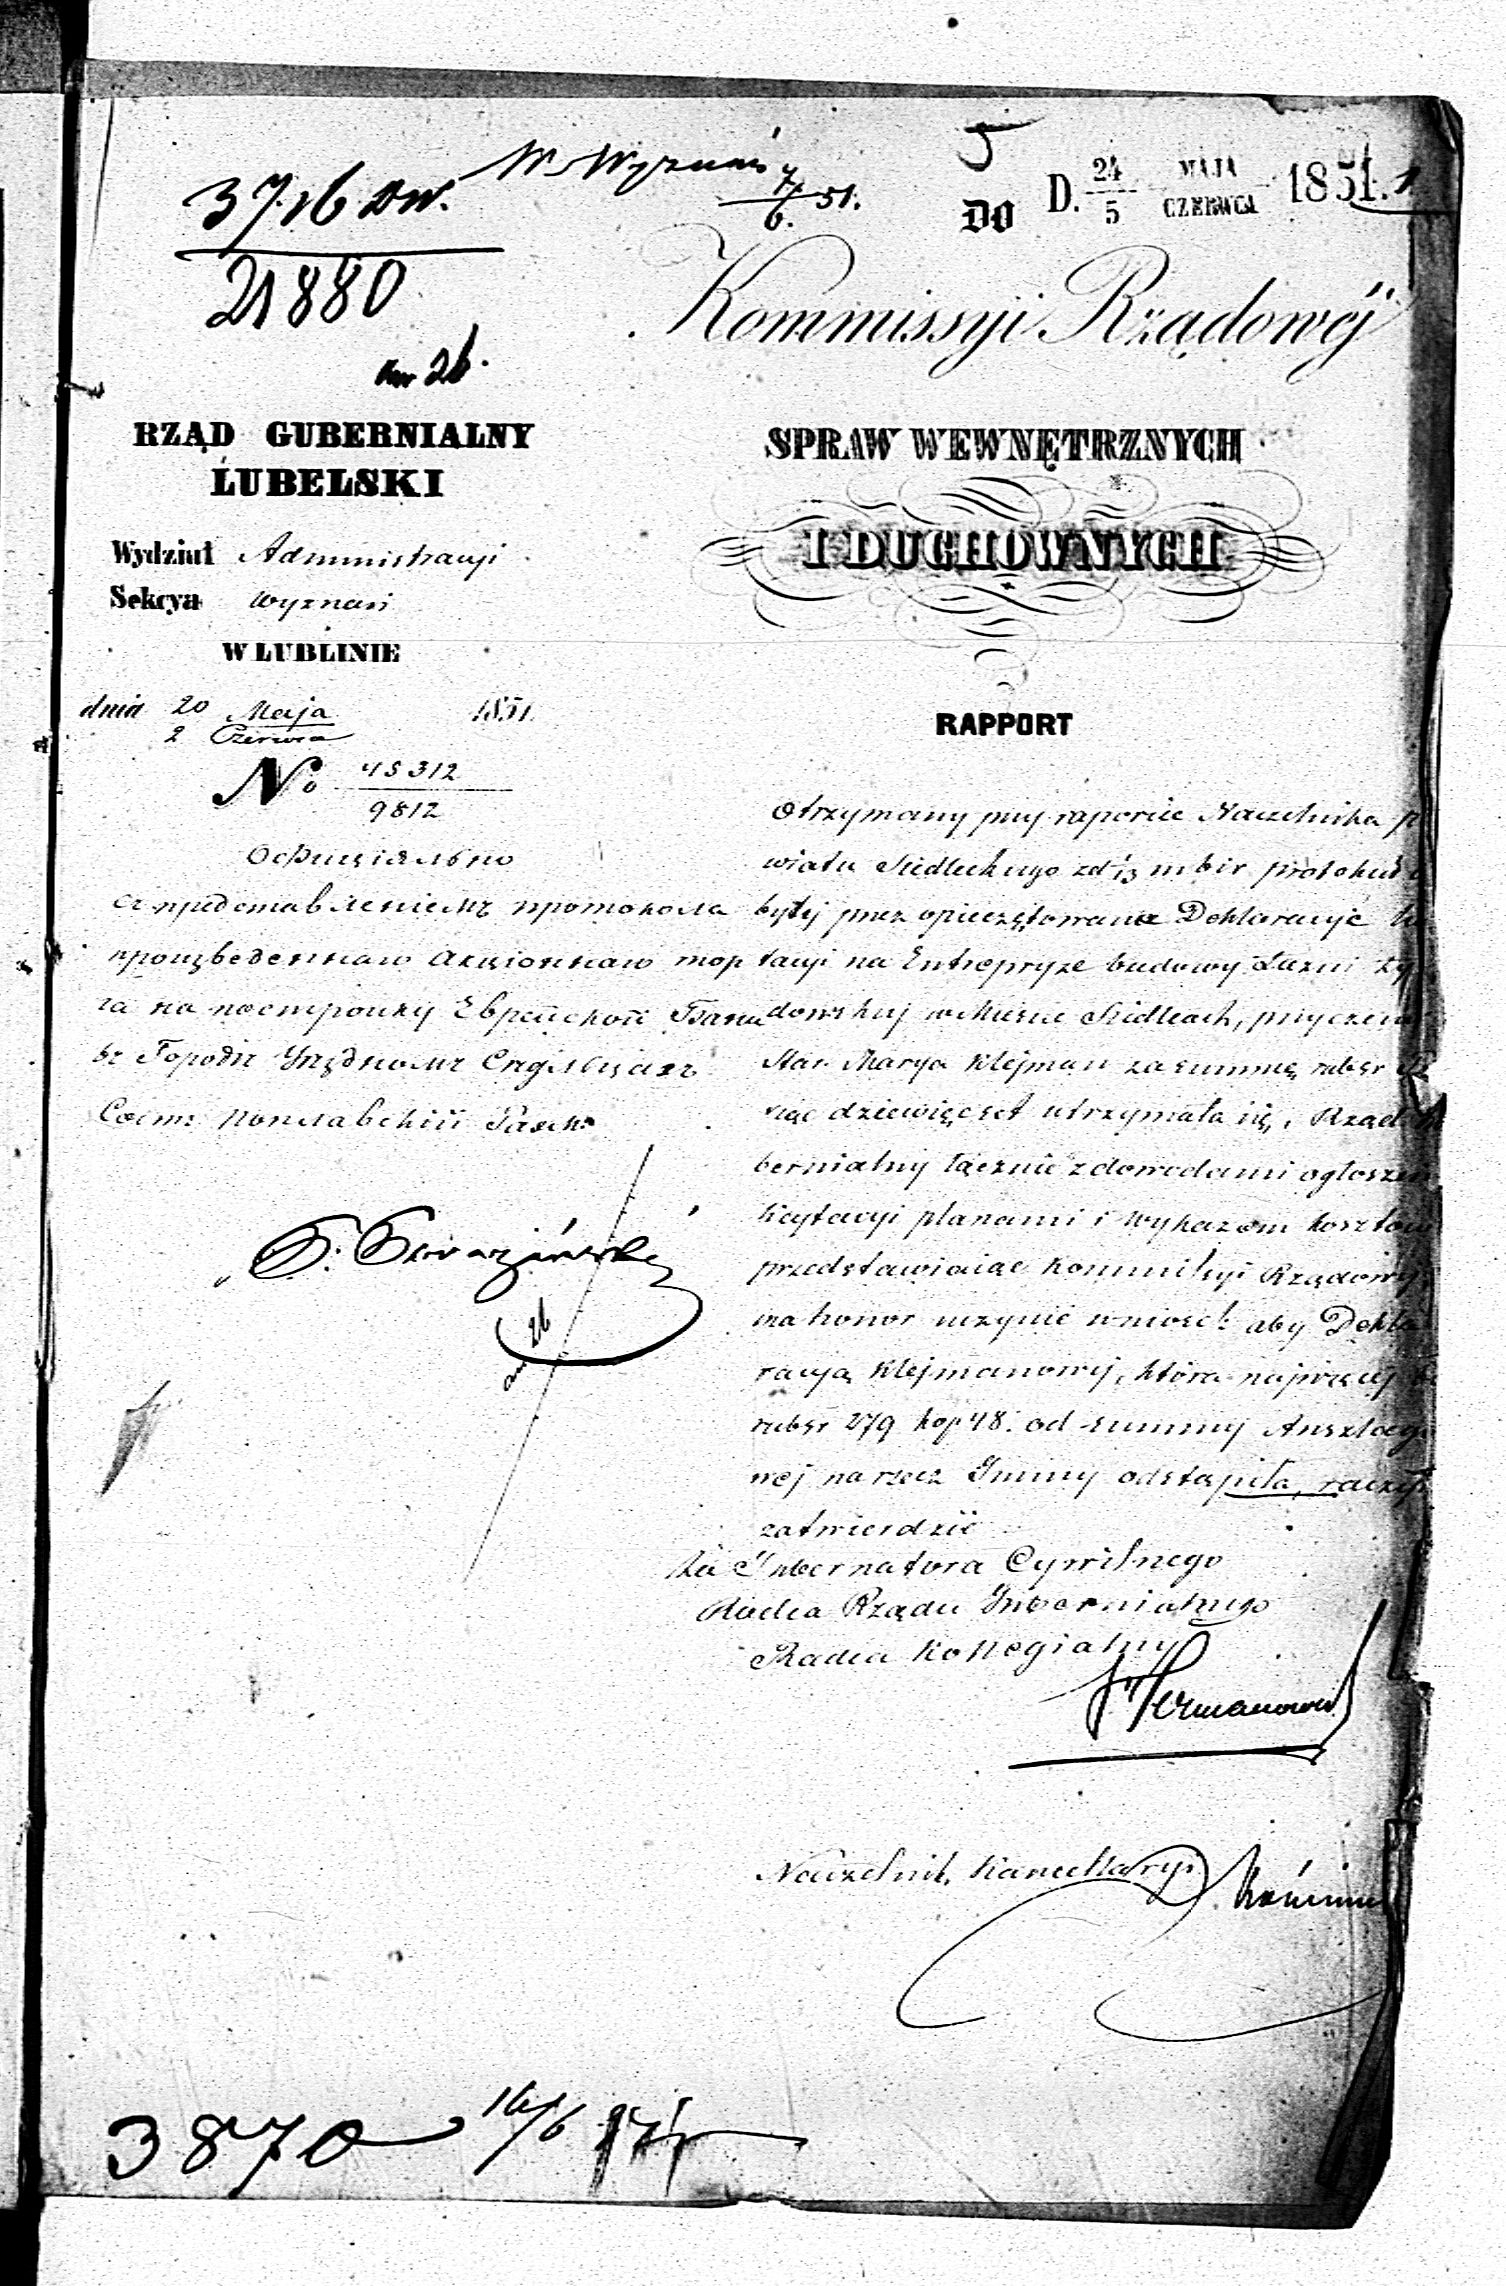 3716 Dw.
21880
W. Wyznań 7/6. 51.
5
DO
D. 24/5 MAJA/CZERWCA 1851. 1
Kommissyi Rządowéj
SPRAW WEWNĘTRZNYCH
I DUCHOWNYCH
RAPPORT
26.
RZĄD GUBERNIALNY
LUBELSKI
Wydział Administracyi
Sekcya Wyznań
W LUBLINIE
dnia 20 Maja 1851
2 Czerwca
No 45312
9812
съ представленіемъ протокола
произведеннаго акціоннаго тор
га на постройку Еврейской Бани
въ Городѣ Уѣздномъ
26
Otrzymany przy raporcie Naczelnika p
wiatu Siedleckiego protokuł
bytej przez opieczętowane Deklaracye
tacyi na Entrepryze budowy Łazni ży
dowskiej w Mieście Siedlcach, przy czem
Star. Marya Klejman za summę rubsr
siąc dziewięcset utrzymała się, Rząd
bernialny łącznie z dowodami ogłoszen
licytacyi planami i wykazem kosztów
przedstawiaiąc Kommissyi Rządowéj
ma honor uczynić wniosek aby Dekla
racyą Klejmanowéj, która najwięcéj
rubsr 279 kop 48. od summy Anszlago
wéj na rzecz Gminy odstąpiła, raczyła
zatwierdzić
Za Gubernatora Cywilnego
Radca Rządu Gubernialnego
Radca Kollegialny
Hermanowicz
Naczelnik Kancellaryi
3870 16/6